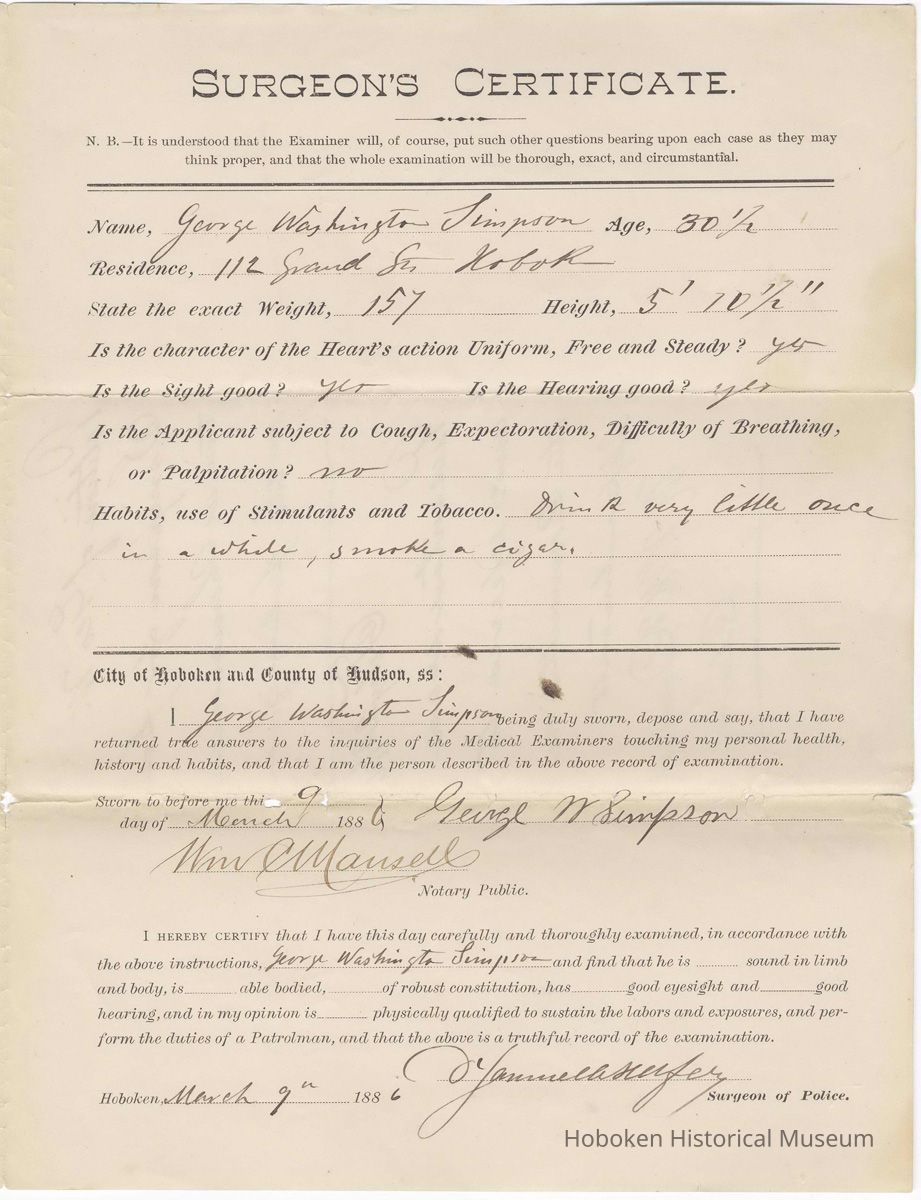 SURGEON'S CERTIFICATE.
N. B.—It is understood that the Examiner will, of course, put such other questions bearing upon each case as they may
think proper, and that the whole examination will be thorough, exact, and circumstantial.
Name, George Washington Simpson Age, 30 1/2
Residence, 112 Grand St. Hobok
State the exact Weight, 157 Height, 5' 10 1/2"
Is the character of the Heart's action Uniform, Free and Steady? yes
Is the Sight good? yes Is the Hearing good? yes
Is the Applicant subject to Cough, Expectoration, Difficulty of Breathing,
or Palpitation? no
Habits, use of Stimulants and Tobacco. Drink very little once
in a while, smoke a cigar.
City of Hoboken and County of Hudson, ss:
I George Washington Simpson being duly sworn, depose and say, that I have
returned true answers to the inquiries of the Medical Examiners touching my personal health,
history and habits, and that I am the person described in the above record of examination.
Sworn to before me this 9
day of March 1886 George W Simpson
Wm C Mansell
Notary Public.
I HEREBY CERTIFY that I have this day carefully and thoroughly examined, in accordance with
the above instructions, George Washington Simpson and find that he is sound in limb
and body, is able bodied, of robust constitution, has good eyesight and good
hearing, and in my opinion is physically qualified to sustain the labors and exposures, and per-
form the duties of a Patrolman, and that the above is a truthful record of the examination.
Hoboken, March 9th 1886 Surgeon of Police.
Hoboken Historical Museum